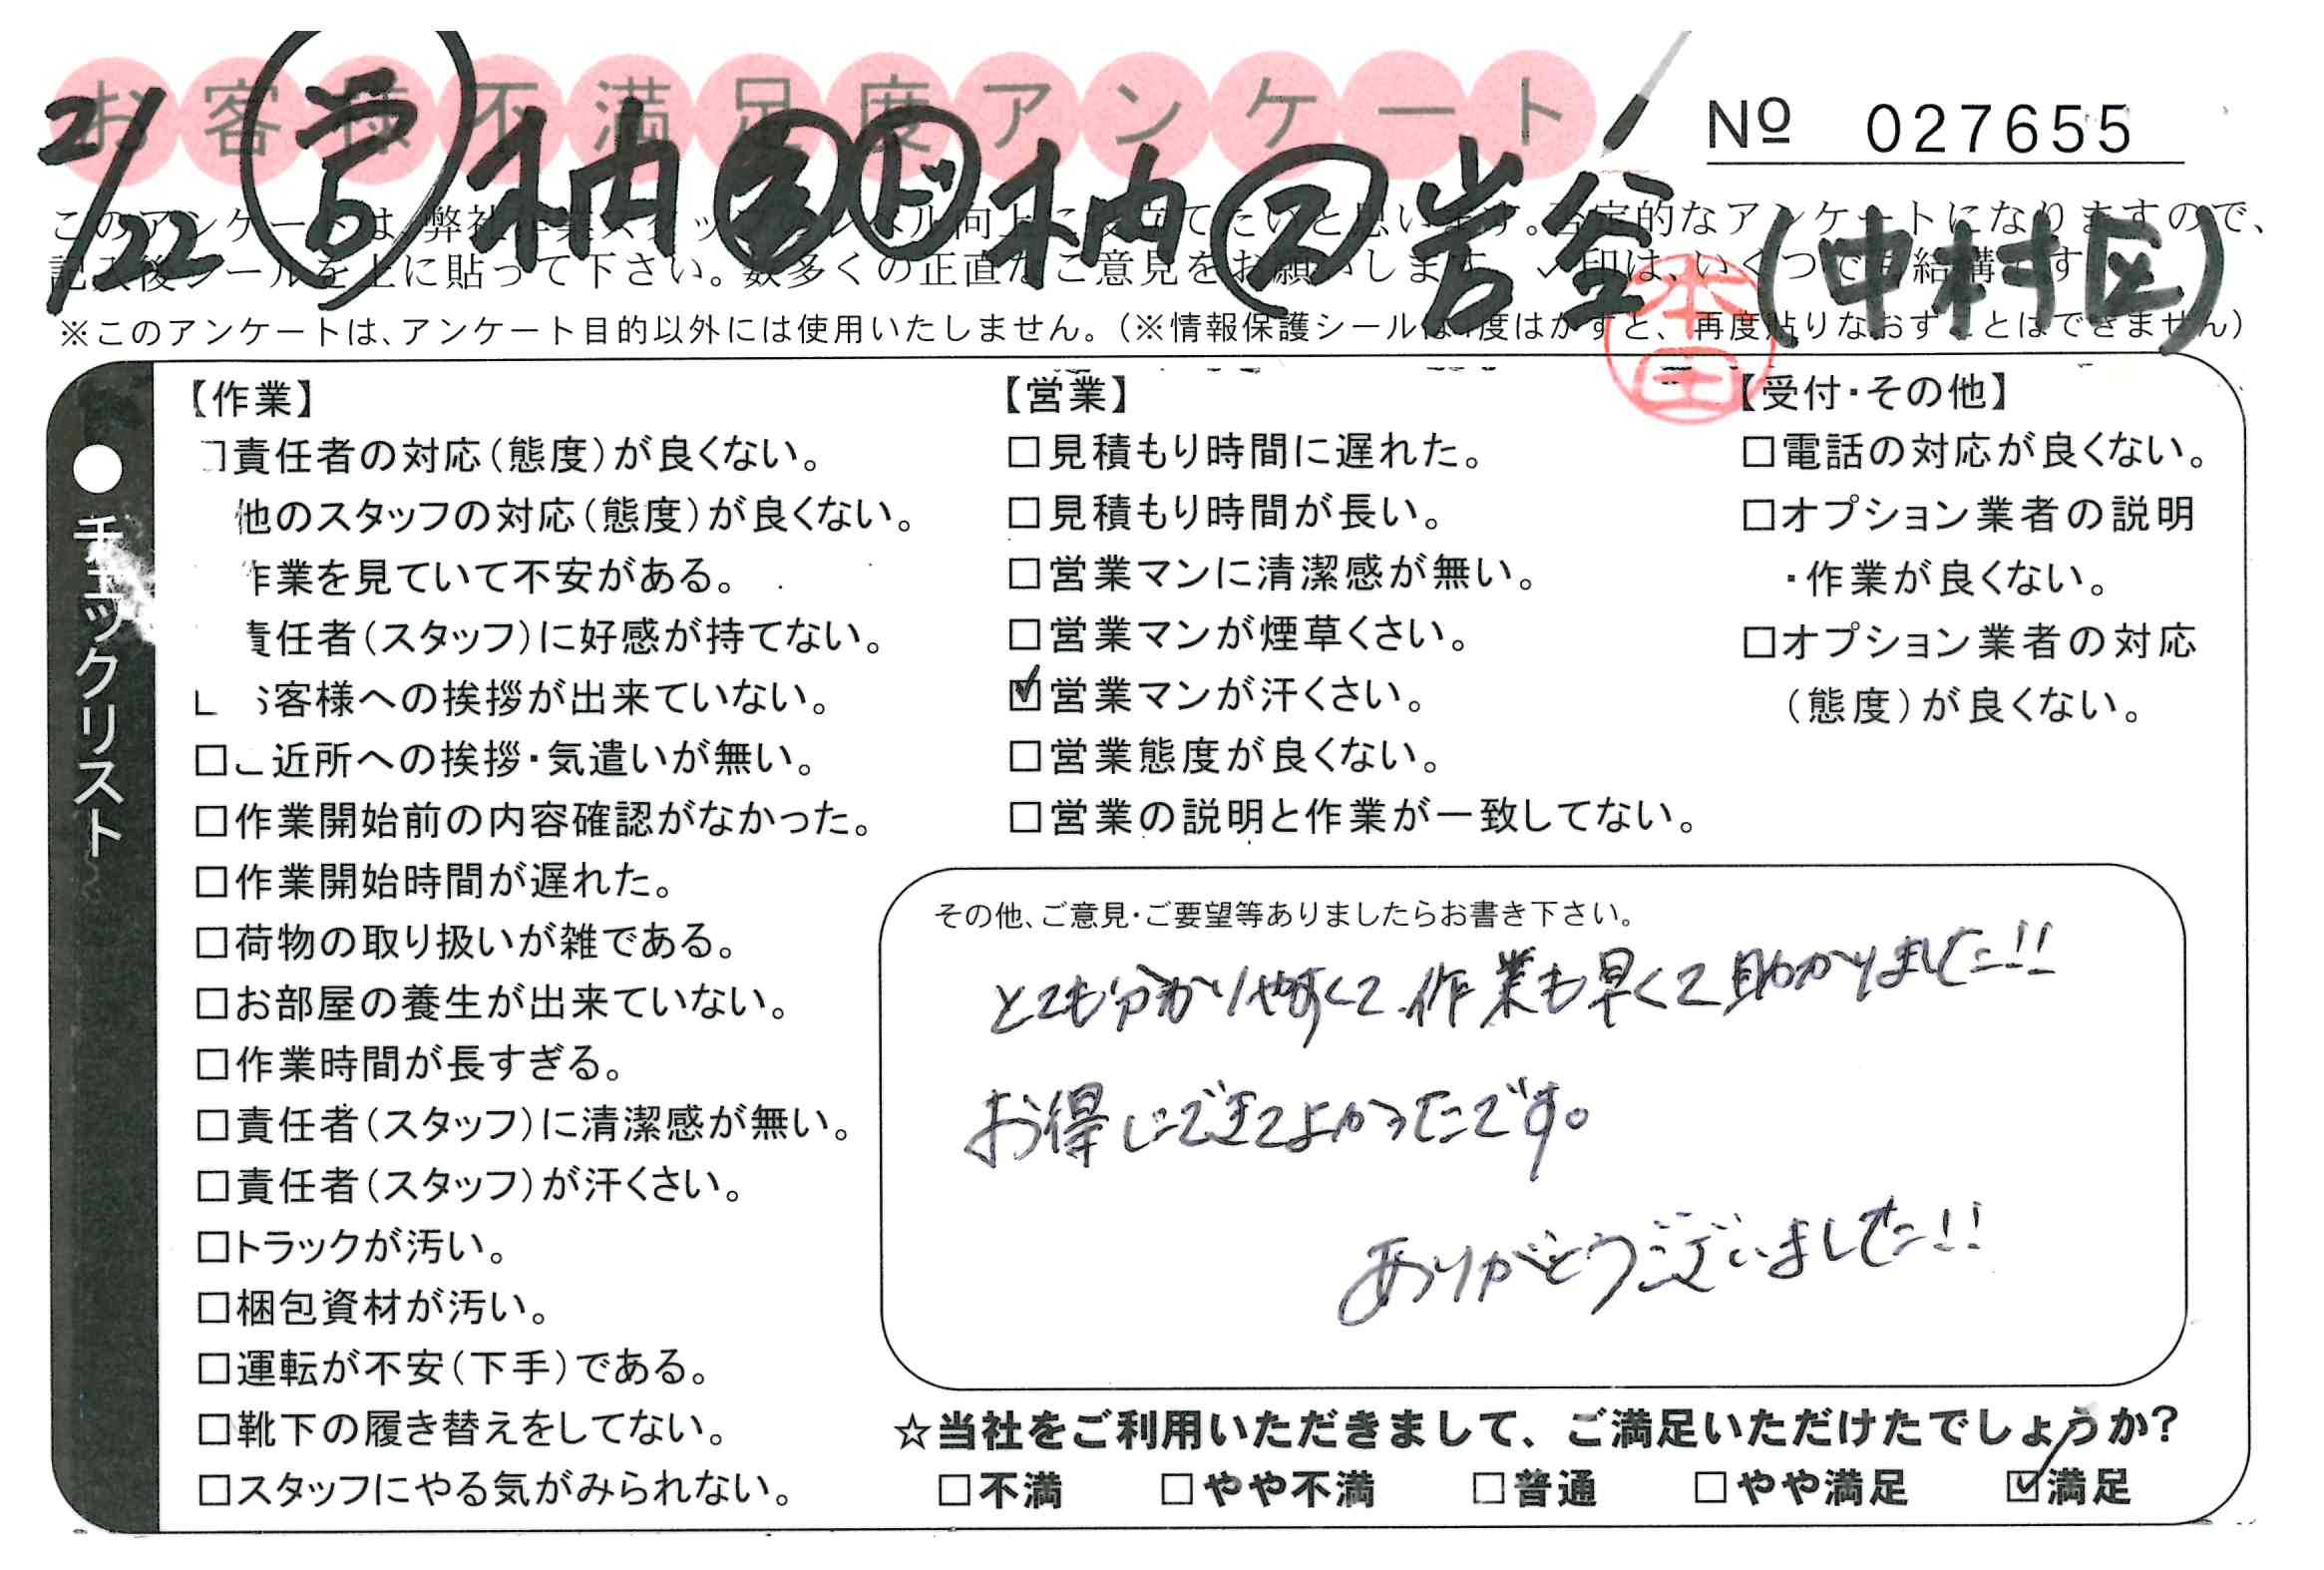 お客様不満足度アンケート
№ 027655
2/22 営 柚 ド 柚 2 岩谷 (中村区)
このアンケートは、弊社
向上に役立てたいと思います。否定的なアンケートになりますので、
記入後シールを上に貼って下さい。数多くの正直なご意見をお願いします。✓印は、いくつでも結構です
※このアンケートは、アンケート目的以外には使用いたしません。(※情報保護シールは1度はがすと、再度貼りなおすことはできません)
本田
●チェックリスト
【作業】
□責任者の対応(態度)が良くない。
他のスタッフの対応(態度)が良くない。
作業を見ていて不安がある。
責任者(スタッフ)に好感が持てない。
お客様への挨拶が出来ていない。
□ご近所への挨拶・気遣いが無い。
□作業開始前の内容確認がなかった。
□作業開始時間が遅れた。
□荷物の取り扱いが雑である。
□お部屋の養生が出来ていない。
□作業時間が長すぎる。
□責任者(スタッフ)に清潔感が無い。
□責任者(スタッフ)が汗くさい。
□トラックが汚い。
□梱包資材が汚い。
□運転が不安(下手)である。
□靴下の履き替えをしてない。
□スタッフにやる気がみられない。
【営業】
□見積もり時間に遅れた。
□見積もり時間が長い。
□営業マンに清潔感が無い。
□営業マンが煙草くさい。
☑営業マンが汗くさい。
□営業態度が良くない。
□営業の説明と作業が一致してない。
【受付・その他】
□電話の対応が良くない。
□オプション業者の説明
・作業が良くない。
□オプション業者の対応
(態度)が良くない。
その他、ご意見・ご要望等ありましたらお書き下さい。
とても分かりやすくて、作業も早くて助かりました!!
お得にできてよかったです。
ありがとうございました!!
☆当社をご利用いただきまして、ご満足いただけたでしょうか?
□不満 □やや不満 □普通 □やや満足 ☑満足